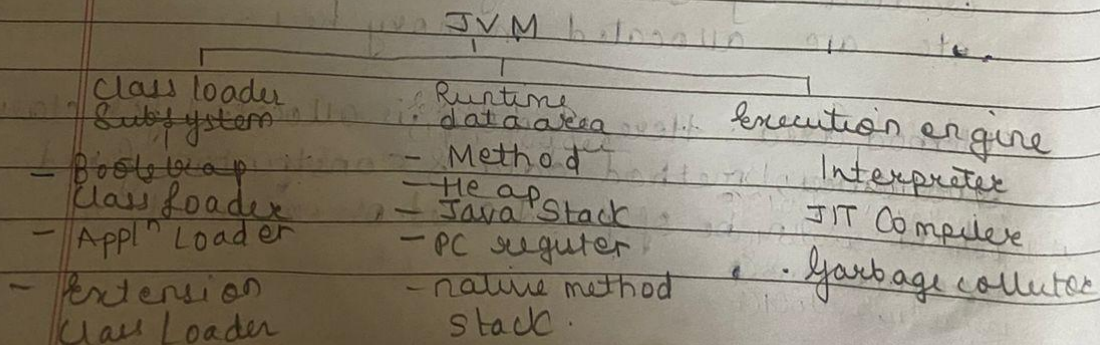 JVM
Class loader
Subsystem
- Bootstrap
Class Loader
- Appln Loader
- Extension
Class Loader
Runtime
data area
- Method
- Heap
- Java Stack
- PC register
- native method
stack.
Execution engine
Interpreter
JIT Compiler
. Garbage collector